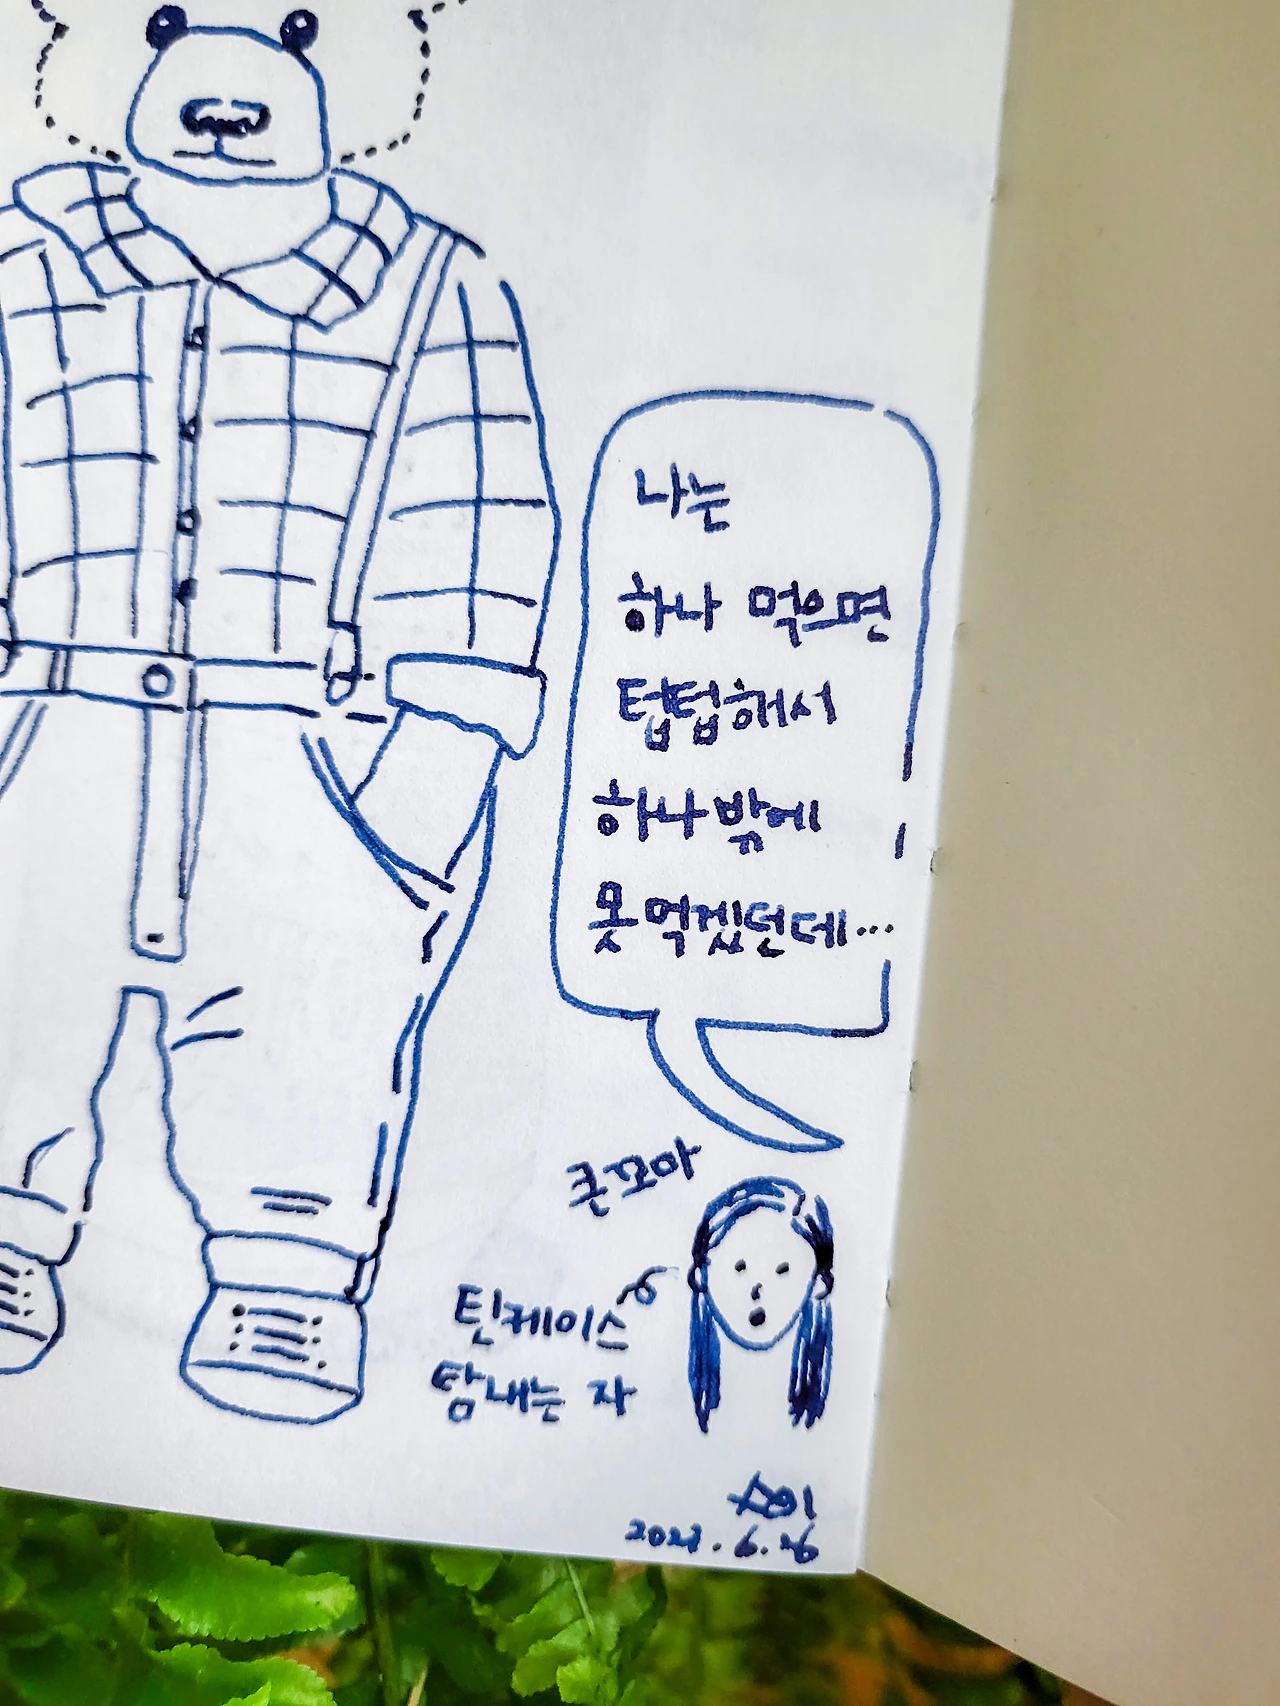 나는
하나 먹으면
텁텁해서
하나밖에
못먹겠던데...
큰꼬마
틴케이스
탐내는 자